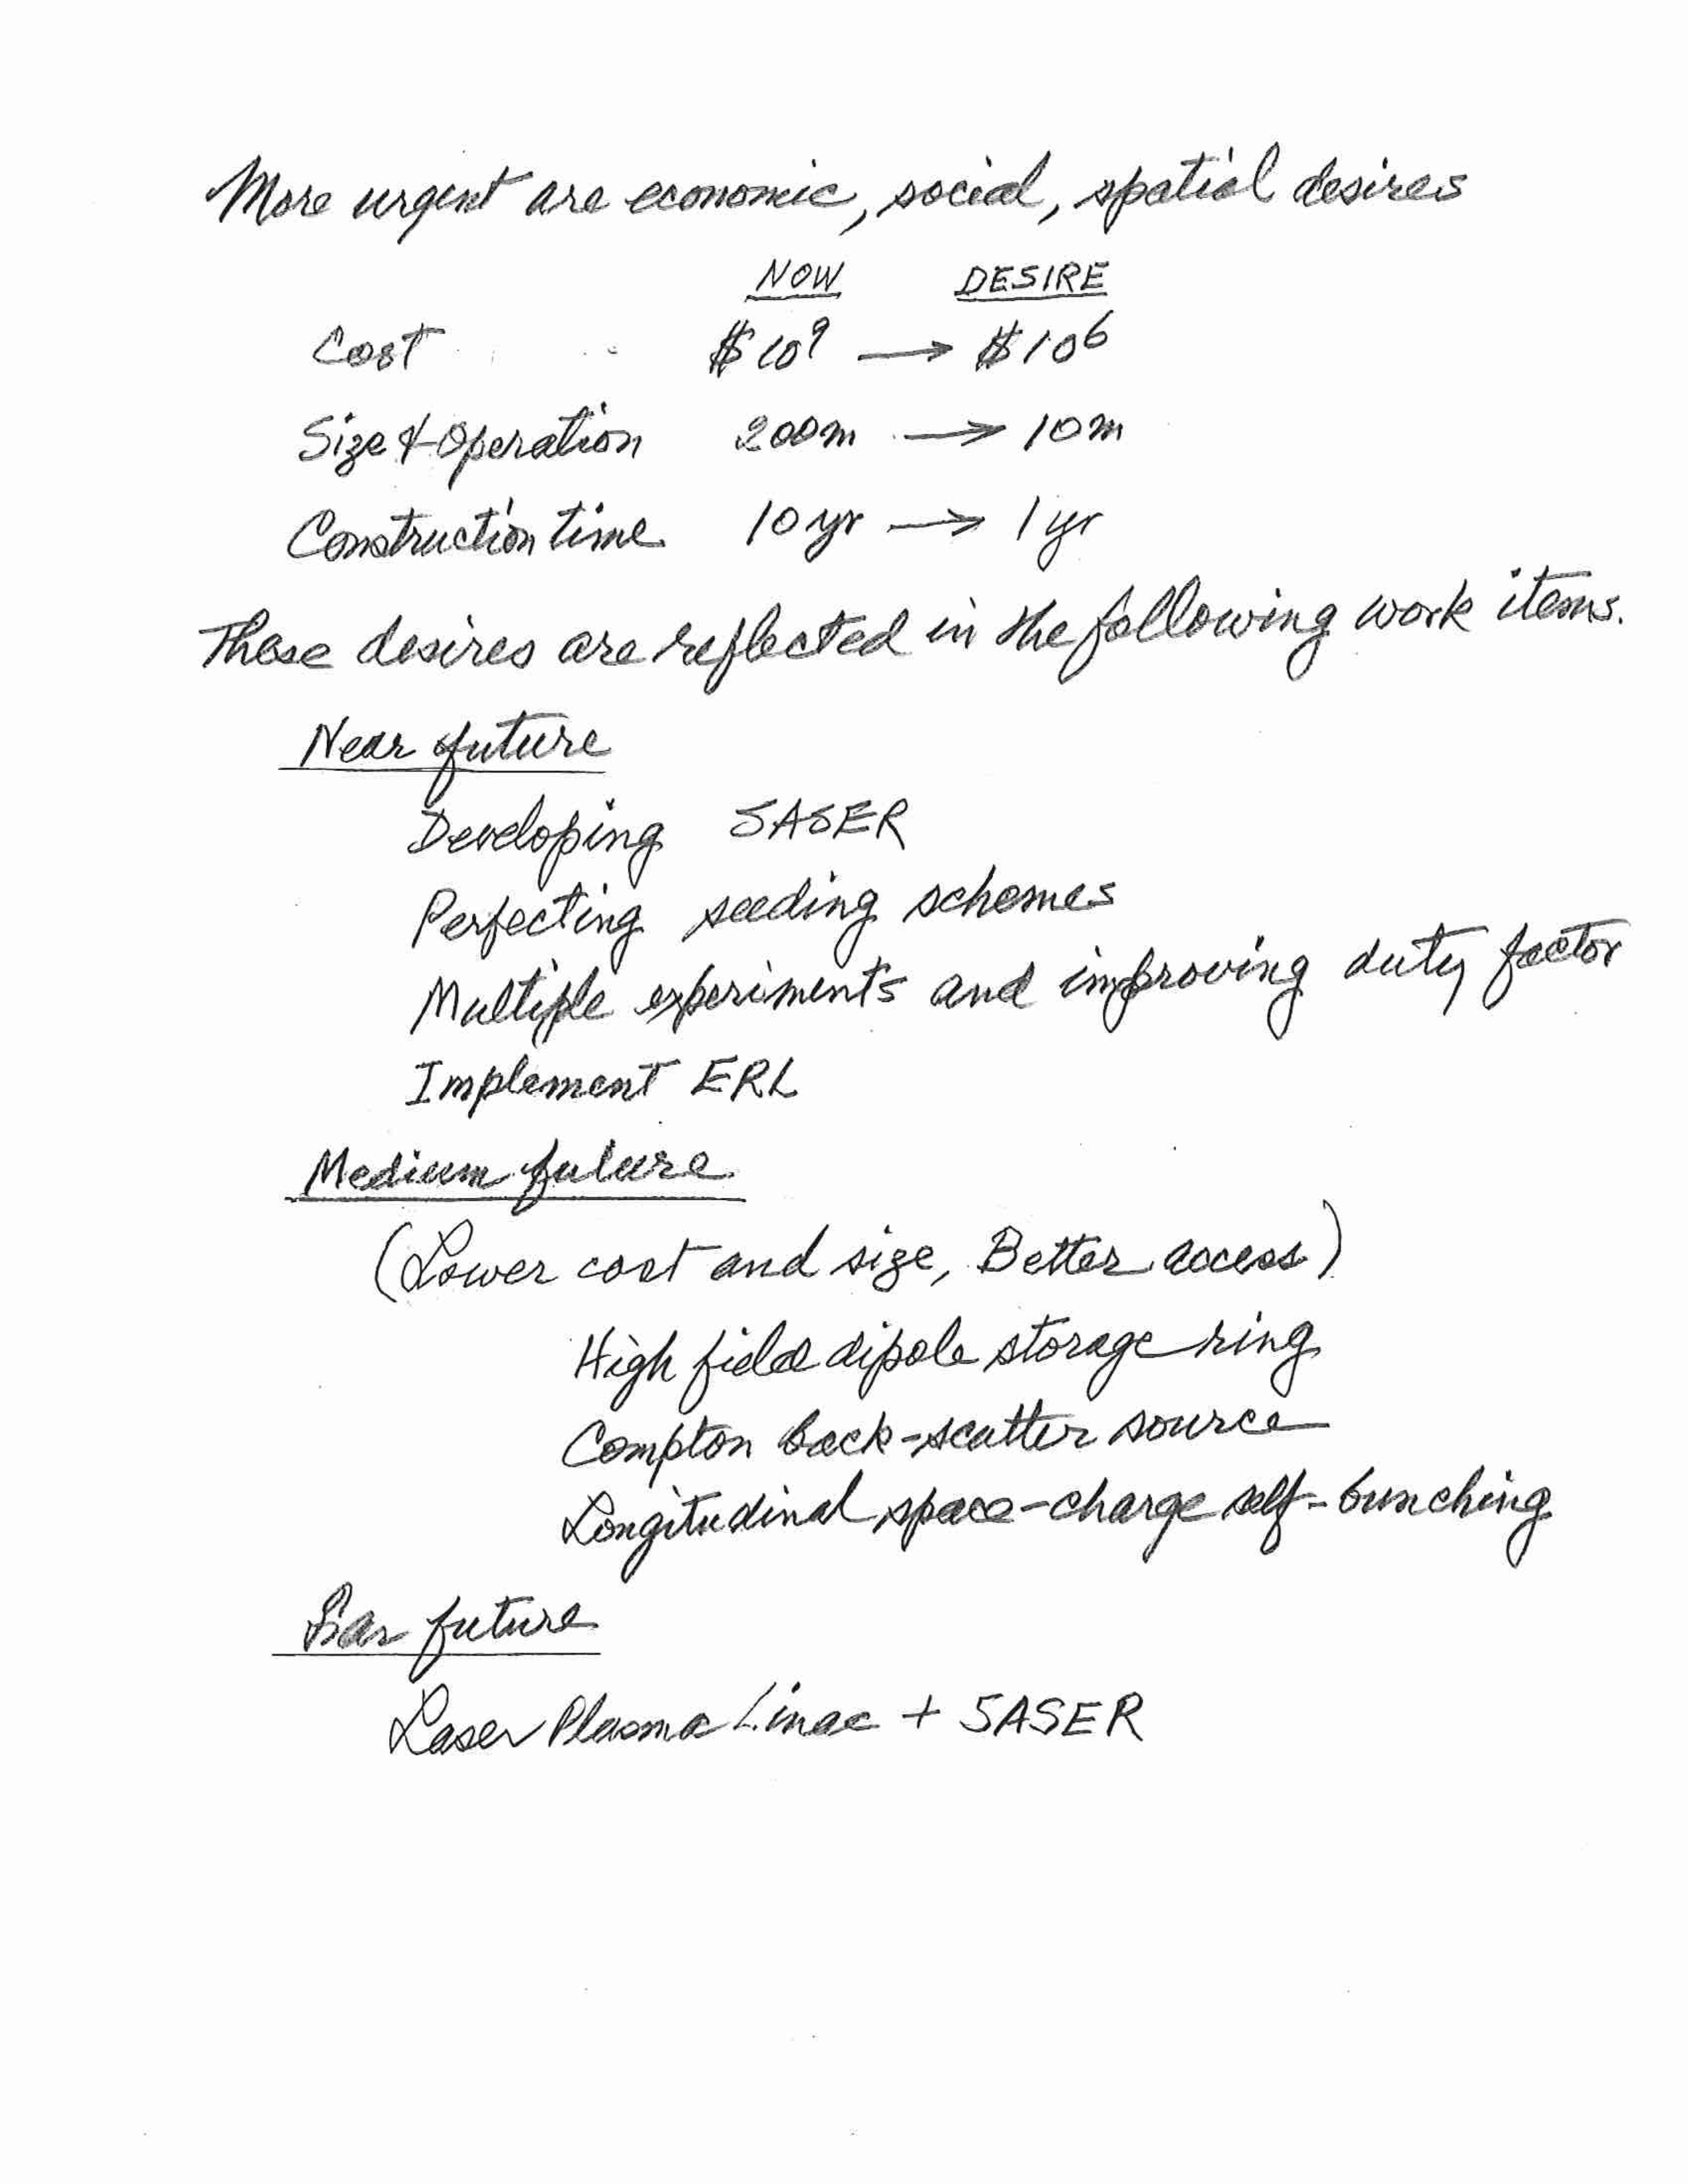 More urgent are economic, social, spatial desires
NOW DESIRE
Cost $10⁹ → $10⁶
Size & Operation 200m → 10m
Construction time 10 yr → 1 yr
These desires are reflected in the following work items.
Near future
Developing SASER
Perfecting seeding schemes
Multiple experiments and improving duty factor
Implement ERL
Medium future
(Lower cost and size, Better access)
High field dipole storage ring
Compton back-scatter source
Longitudinal space-charge self-bunching
Far future
Laser Plasma Linac + SASER